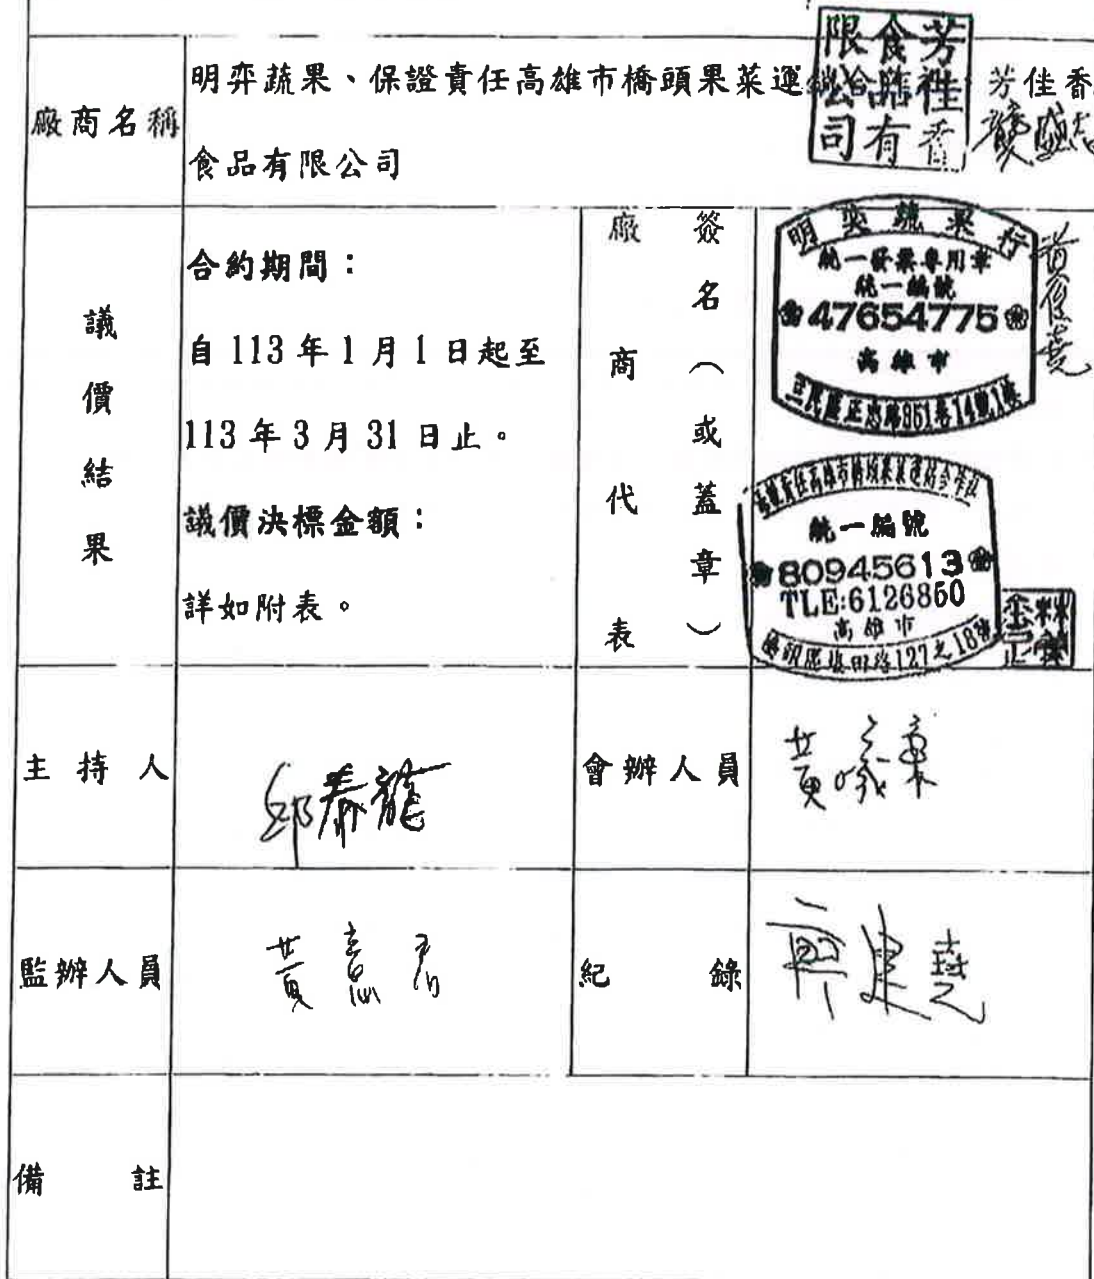 廠商名稱
明弈蔬果、保證責任高雄市橋頭果菜運銷合作社、芳佳香
食品有限公司
芳佳香食品有限公司
議價結果
合約期間：
自 113 年 1 月 1 日起至
113 年 3 月 31 日止。
議價決標金額：
詳如附表。
廠商代表
簽名（或蓋章）
明奕蔬果行
統一發票專用章
統一編號
47654775
高雄市
三民區正忠路851巷14號1樓
保證責任高雄市橋頭果菜運銷合作社
統一編號
80945613
TLE:6126860
高雄市
127之18號
主持人
邱泰龍
會辦人員
黃
監辦人員
黃意君
紀錄
建堯
備註